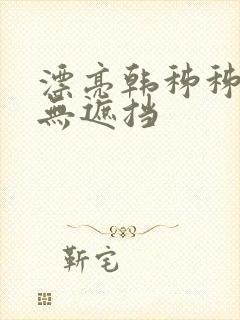 漂亮韩秭秭
無遮挡
靳宅